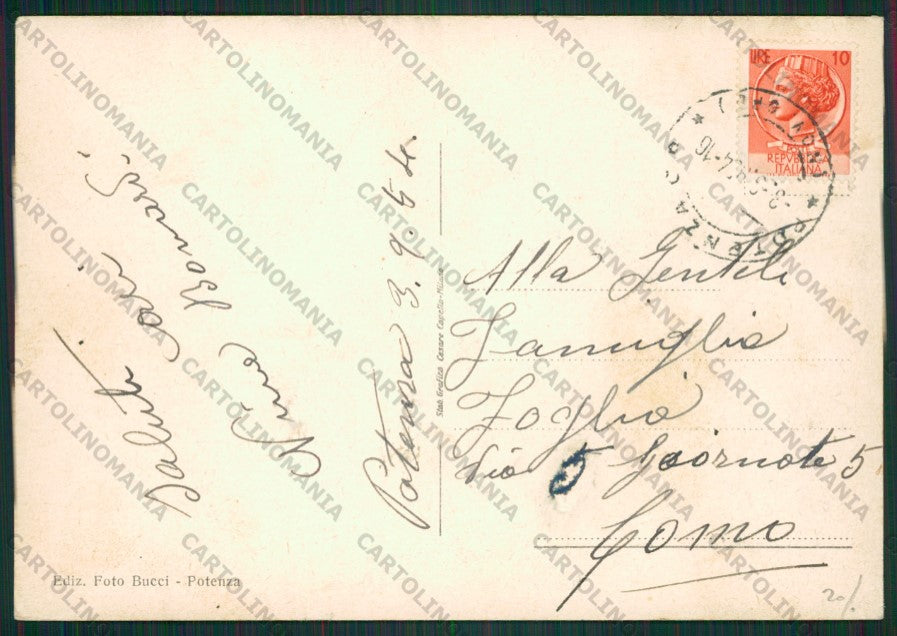 LIRE 10
REPUBBLICA
ITALIANA
POTENZA
Saluti cari
Potenza 3.9.54.
Stab. Grafico Cesare Capello-Milano
Alla Gentile
Famiglia
Foglia
Via 5 Giornate 5
Como
Ediz. Foto Bucci - Potenza
20/.
CARTOLINOMANIA